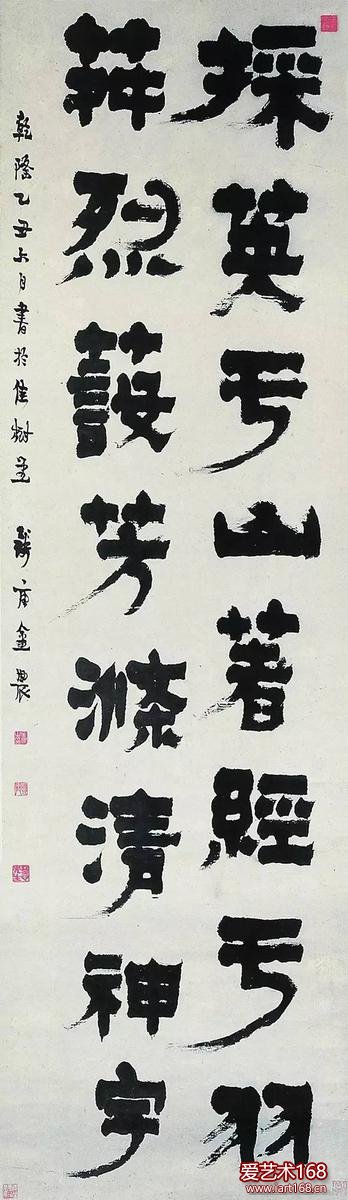 採英于山著經于羽
荈烈蔎芳滌清神宇
乾隆乙丑六月書於佳樹堂 錢唐金農
爱艺术168
www.iart168.cn